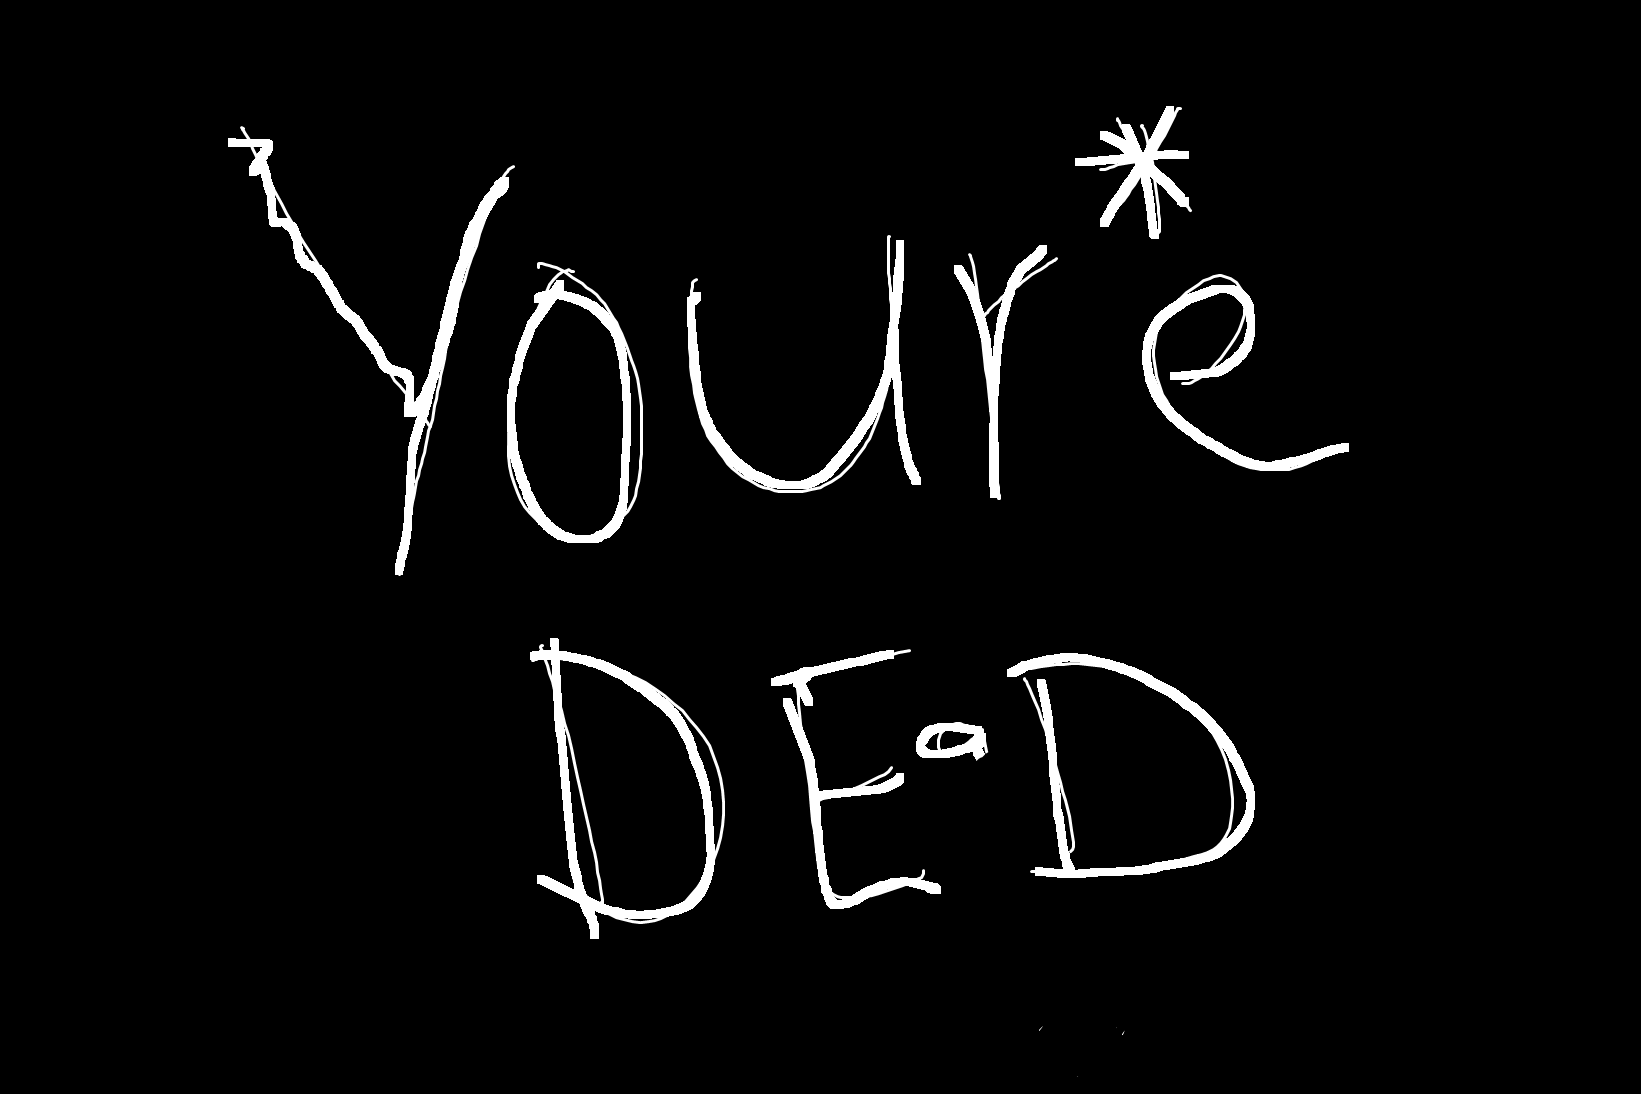 Your*e
DEaD